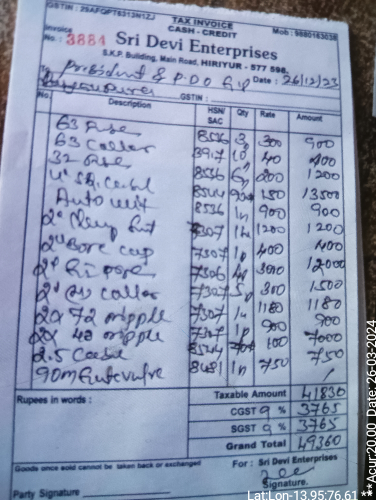 GSTIN : 29AFQPT8313N1ZJ
TAX INVOICE
CASH - CREDIT
Mob : 9880163038
Invoice
No. : 3884 Sri Devi Enterprises
S.K.P. Building, Main Road, HIRIYUR - 577 598.
To President & P.D.O G.P Date : 26/12/23
GSTIN :
No. Description HSN/SAC Qty Rate Amount
63 Fuse 8536 3 300 900
63 Collar 3917 10 40 400
32 Fuse 8536 6 200 1200
8544 150 13500
Auto 8536 1n 900 900
7307 1n 1200 1200
2" Bore cap 7307 1p 400 400
2" 7306 4p 3000 12000
2" collar 7307 5p 300 1500
2x 72 nipple 7307 1n 1180 1180
2x 42 nipple 7307 1p 900 900
2.5 8544 100 7000
8481 1n 750 750
Rupees in words :
Taxable Amount 41830
CGST 9 % 3765
SGST 9 % 3765
Grand Total 49360
Goods once sold cannot be taken back or exchanged
For : Sri Devi Enterprises
Party Signature
Signature.
Lat:Lon-13.95:76.61 **Acur:20.00 Date: 26-03-2024